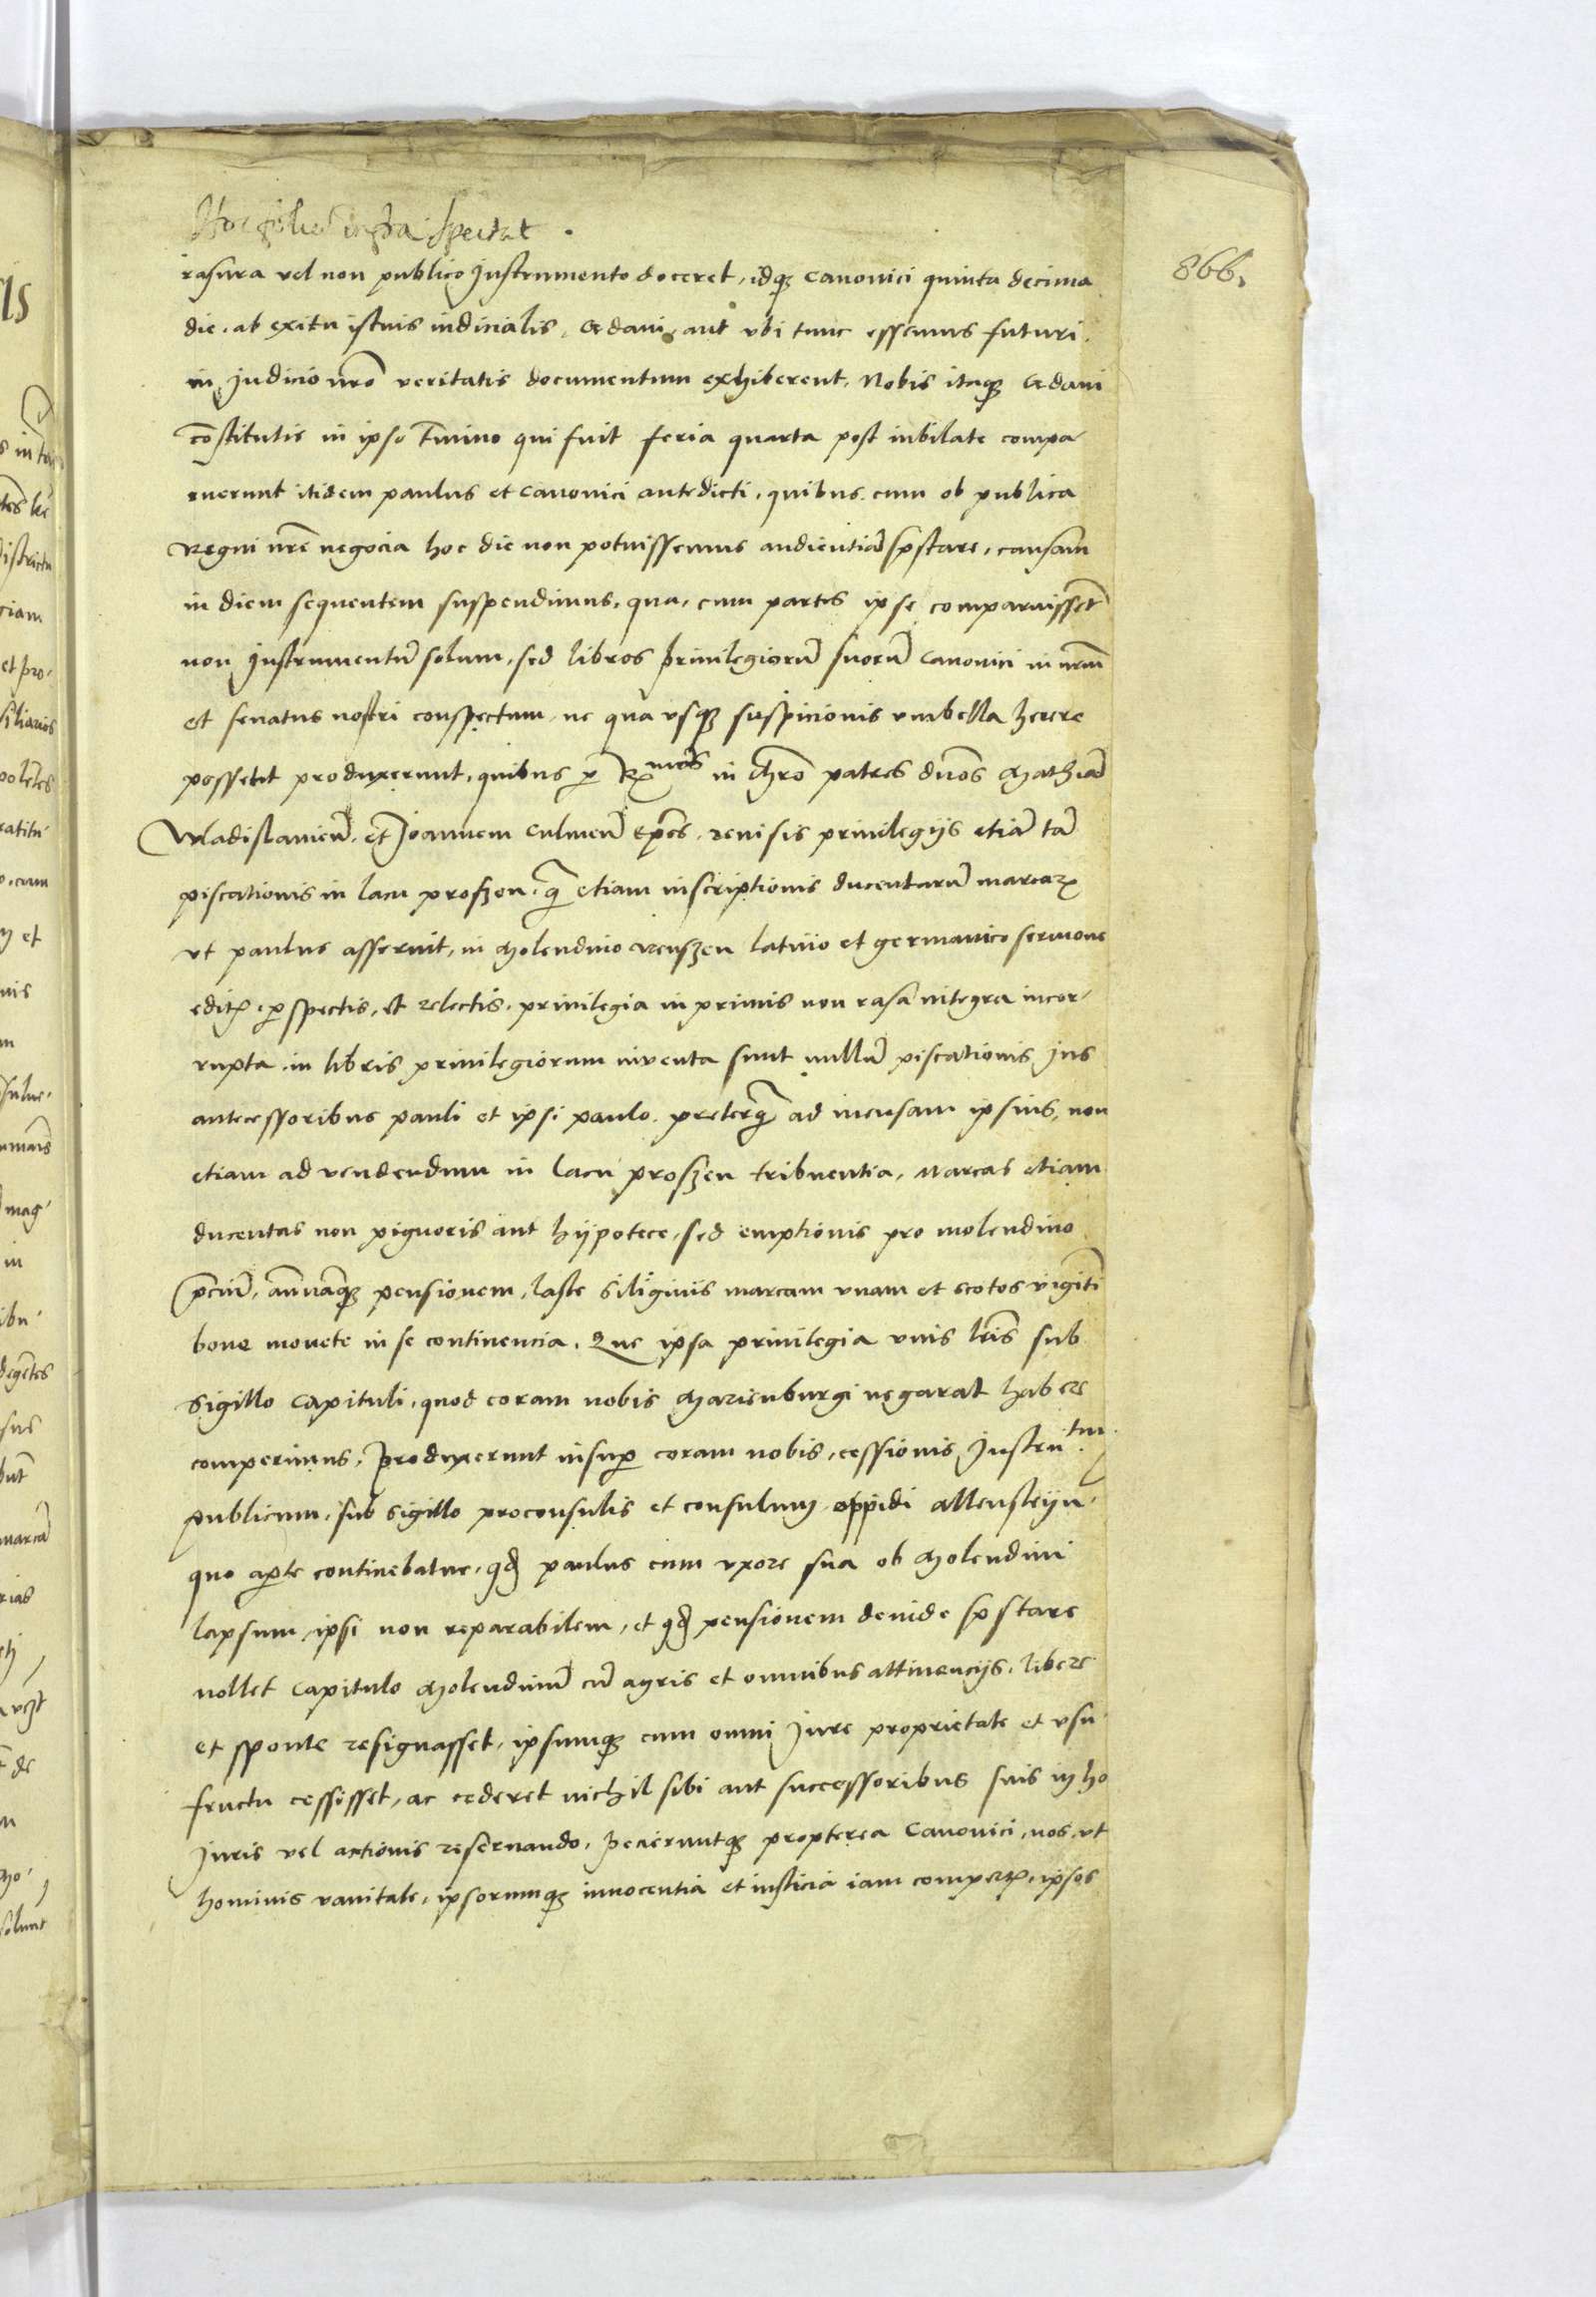 Hoc folium infra spectat.
866.
rasura vel non publico Instrumento doceret, idq3 Canonici quinta decima
die. ab exitu istius iudicialis, Gedani, aut vbi tunc essemus futuri.
in Judicio nr̄o veritatis documentum exhiberent. Nobis itaq3 Gedani
cōstitutis in ipso T̄mino qui fuit feria quarta post iubilate compa-
ruerunt itidem paulus et Canonici antedicti, quibus. cum ob publica
Regni nr̄e negocia hoc die non potuissemus audientiā p̄stare, causam
in diem sequentem suspendimus, qua, cum partes ipse comparuissēt
non Instrumentū solum, sed libros priuilegiorū suorū Canonici in nr̄m
et senatus nostri conspectum, ne qua vsq3 suspicionis vmbella herere
possetit produxerunt, quibus p̄ R.mos in Chr̄o patres dn̄os Mathiā
Wladislauien̄. et Joannem Culmen̄ Ep̄os. reuisis priuilegijs etiā tā
piscationis in lacu proszen. q̄ etiam inscriptionis ducentarū marcar̄
vt paulus asseruit, in Molendino Reuszen latino et germanico sermone
edit̄. p̄spectis, et relectis. priuilegia in primis non rasa integra incor-
rupta. in libris priuilegiorum inventa sunt nullū piscationis Jus
antecessoribus pauli et ipsi paulo. preterq̄ ad mensam ipsius, non
etiam ad vendendum in lacu proszen tribuentia, Marcas etiam
ducentas non pignoris aut hijpotece, sed emptionis pro molendino
p̄ciū, annuāq3 pensionem, laste siliginis marcam vnam et scotos vigīti
bone monete in se continencia. Que ipsa priuilegia vnis l̄ris sub
sigillo Capituli, quod coram nobis Marienburgi negarat habere
comperimus. Produxerunt insup̄ coram nobis, cessionis Instrutm.
publicum, sub sigillo proconsulis et consulum oppidi allensteijn.
quo ap̄te continebatur. qd̄ paulus cum vxore sua ob Molendini
lapsum, ipsi non reparabilem, et qd̄ pensionem deinde p̄stare
nollet Capitulo Molendinū cū agris et omnibus attinencijs. libere
et sponte resignasset, ipsumq3 cum omni Jure proprietate et vsu-
fructu cessisset, ac cederet nichil sibi aut successoribus suis in ho
Juris vel actionis reseruando. Pecieruntq3 propterea Canonici, nos, vt
hominis vanitate, ipsorumq3 innocentia et iusticia iam compert̄. ipsos